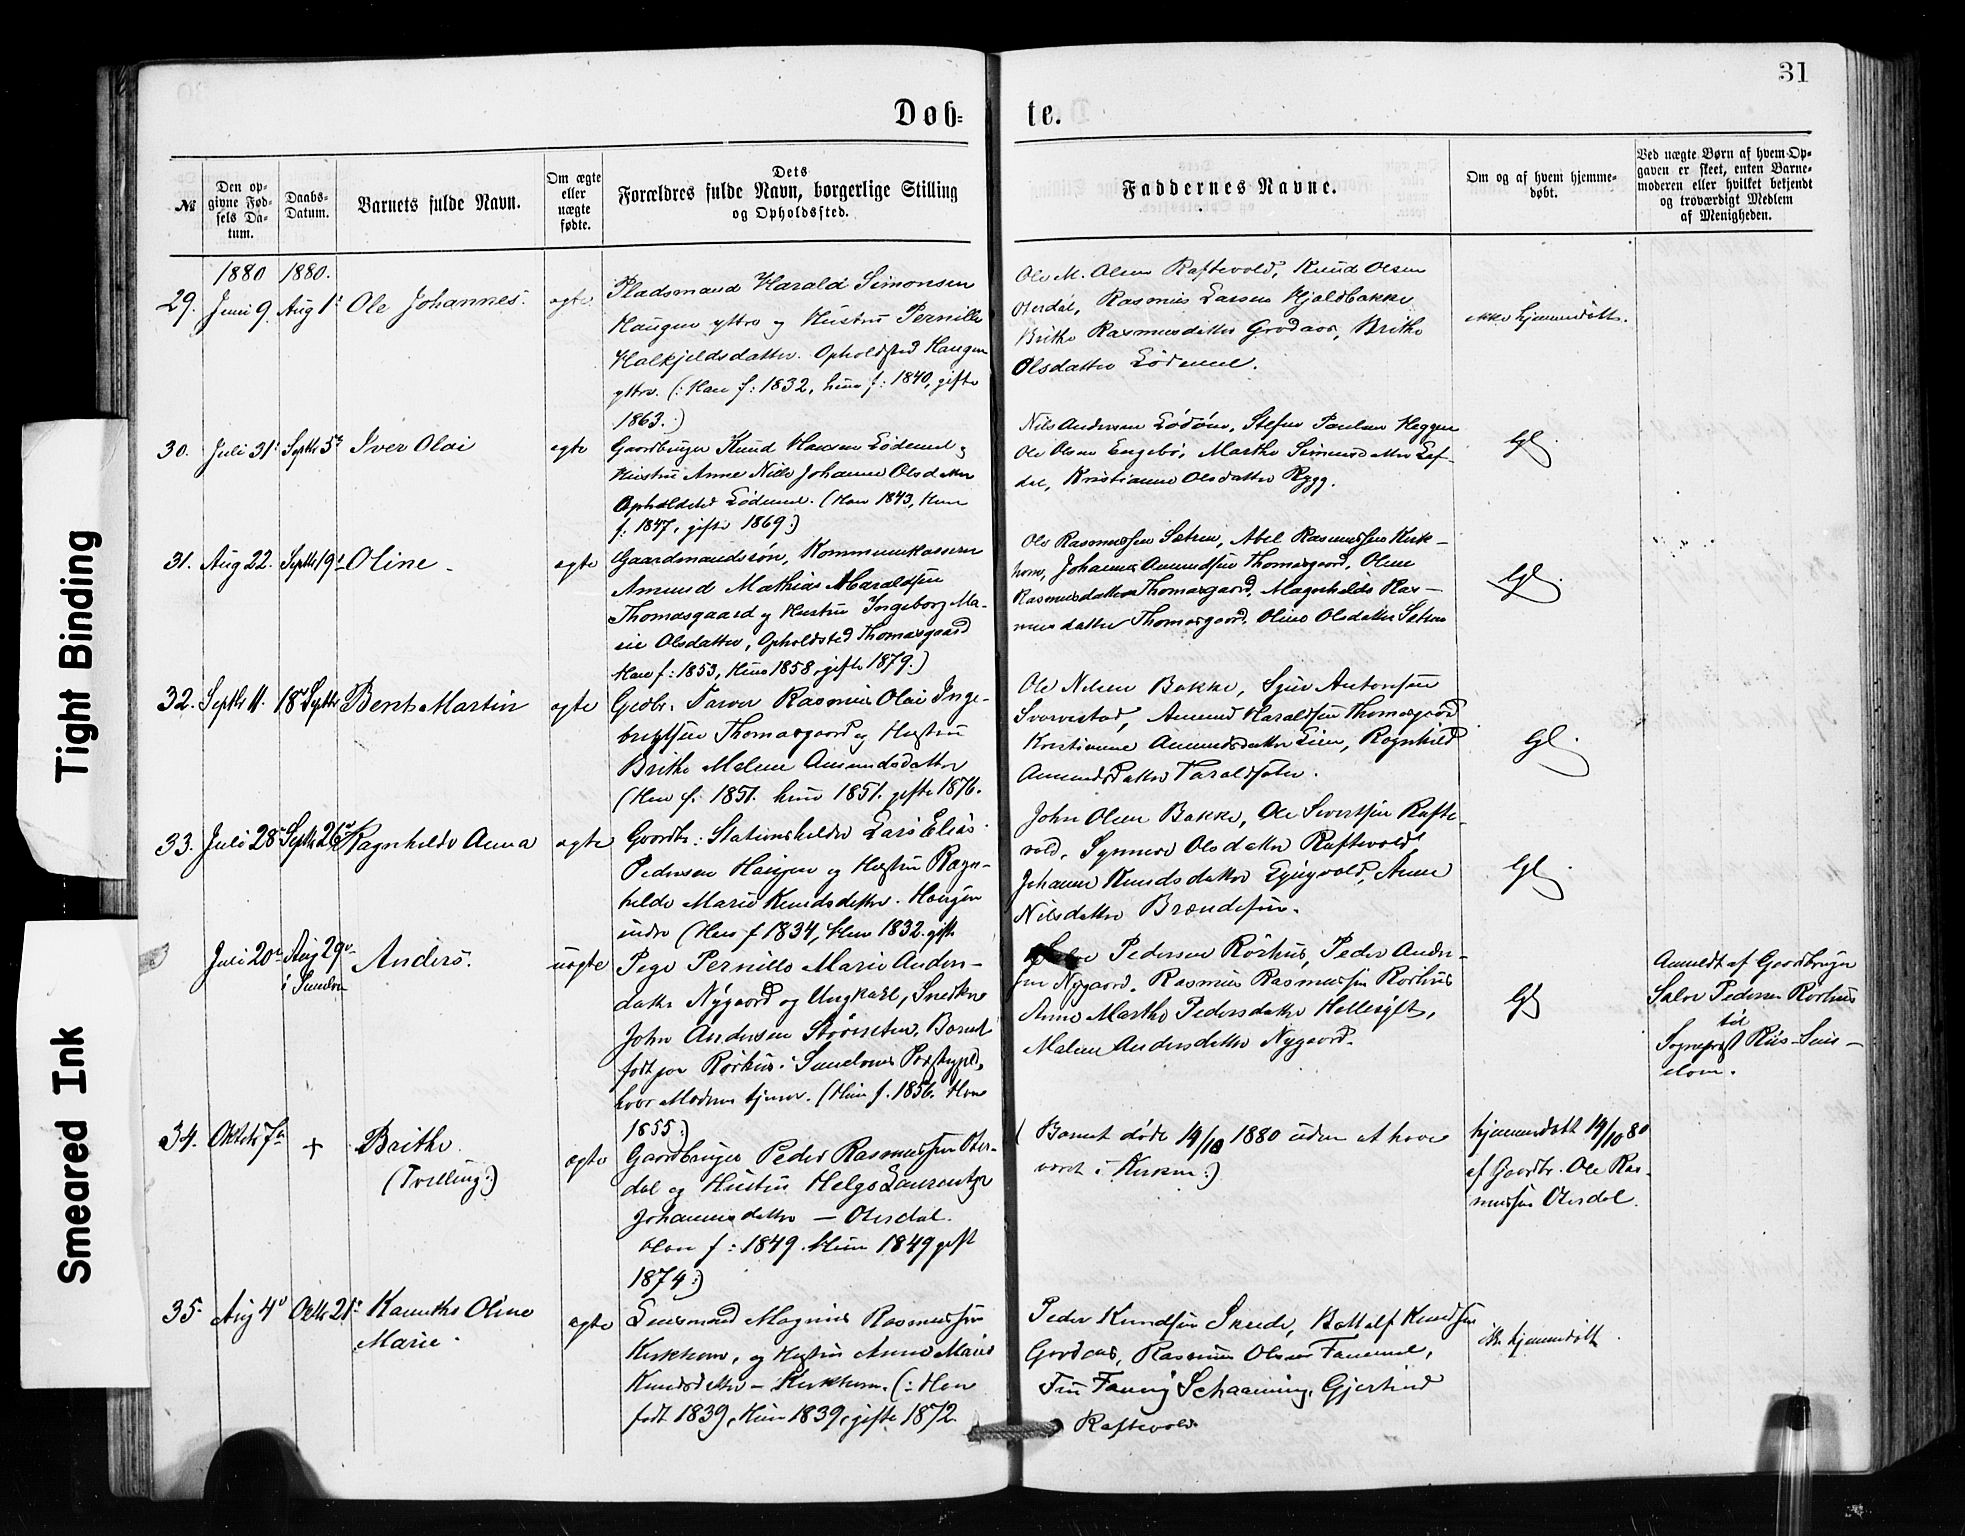 31
Døb-
te.
№
Den op-
givne Fød-
sels Da-
tum.
Daabs-
Datum.
Barnets fulde Navn.
Om ægte
eller
uægte
fødte.
Dets
Forældres fulde Navn, borgerlige Stilling
og Opholdssted.
Faddernes Navne.
Om og af hvem hjemme-
døbt.
Ved uægte Børn af hvem Op-
gaven er skeet, enten Barne-
moderen eller hvilket bekjendt
og troværdigt Medlem
af Menigheden.
1880 1880.
29. Juni 9. Aug 1ste Ole Johannes. ægte
Pladsmand Harald Simonsen
Haugen yttre og Hustru Pernille
Halkjeldsdatter. Opholdsted Haugen
yttre. (: Han f: 1832, hun f: 1840, gifte
1863.)
Ole M. Olsen Raftevold, Knud Olsen
Oterdal, Rasmus Larsen Hjaldbakke
Brithe Rasmusdatter Grodaas, Brithe
Olsdatter Lødemel.
ikke hjemmedøbt.
30. Juli 31 Septbr 5te Iver Olai ægte
Gaardbruger Knud Hansen Lødemel og
Hustru Anne Nille Johanne Olsdatter
Opholdsted Lødemel. (Han 1843, Hun
f. 1847, gifte 1869:)
Nils Andersen Lødøen, Stefen Paulsen Heggen
Ole Olsen Engebø, Marthe Simonsdatter Lef-
dal, Kristianne Olsdatter Rygg.
Gl.
31. Aug 22. Septbr 19de Oline ægte
Gaardmandssøn, Kommunekasserer
Amund Mathias Haraldsen
Thomasgaard og Hustru Ingeborg Ma-
rie Olsdatter, Opholdsted Thomasgaard
Han f: 1853, Hun 1858, gifte 1879.)
Ole Rasmussen Sætren, Abel Rasmussen Kirk-
horn, Johannes Amundsen Thomasgaard, Oline
Rasmusdatter Thomasgaard, Magnhilde Ras-
musdatter Thomasgaard, Oline Olsdatter Sætren
Gl.
32. Septbr 11. 18de Septbr Bent Martin ægte
Grdbr. Farver Rasmus Olai Inge-
brigtsen Thomasgaard og Hustru
Brithe Malene Amundsdatter
(Han f. 1851. hun 1851. gifte 1876.
Ole Nilsen Bakke, Sjur Antonsen
Svorestad, Amund Haraldsen Thomasgaard
Kristianne Amundsdatter Lien, Ragnhild
Amundsdatter Taraldsæter.
Gl.
33. Juli 28 Septbr 26de Ragnhilde Anna ægte
Gaardbr: Stationsholder Lars Elias
Pedersen Haugen og Hustru Ragn-
hilde Marie Knudsdatter. Haugen
indre (Han f 1834, Hun 1832. gift
John Olsen Bakke, Ole Sivertsen Rafte-
vold, Synneve Olsdatter Raftevold
Johanne Knudsdatter Ljøgvold, Anne
Nilsdatter Brændesøen.
Gl.
Juli 20de Aug 29de Anders. uægte
i Sunelven
Pige Pernille Marie Anders-
datter Nygaard og Ungkarl, Snedker
John Andersen Størseten, Barnet
født paa Rørhus i Sunelvens Præstegjeld,
hvor Moderen tjener. (Hun f. 1856. Han
1855:)
Salve Pedersen Rørhus, Peder Ander-
sen Nygaard, Rasmus Rasmussen Rørhus
Anne Marthe Pedersdatter Hellesylt,
Malene Andersdatter Nygaard.
Gl
Anmeldt af Gaardbruger
Salve Pedersen Rørhus
til
Sogneprest Riis-Sun-
elven.
34. Oktober 7de + Brithe (Tvilling:) ægte
Gaardbruger Peder Rasmussen Oter-
dal og Hustru Helge Laurentze
Johannesdatter — Oterdal.
Han f: 1849. Hun 1849 gift
1874:)
( Barnet døde 14/10 1880 uden at have
været i Kirken:)
hjemmedøbt 14/10 80
af Gaardbr. Ole Ras-
mussen Oterdal.
35. Aug 4de Octbr 21de Kanutte Oline Marie. ægte
Lensmand Magnus Rasmussen
Kirkhorn, og Hustru Anne Marie
Knudsdatter — Kirkhorn. (: Han
født 1839, Hun 1839, gifte 1872
Peder Knudsen Skrede, Bottolf Knudsen
Grodaas, Rasmus Olsen Fannemel,
Fru Fanny Schaanning, Gjertrud
Raftevold
ikke hjemmedøbt.
Tight Binding
Smeared Ink